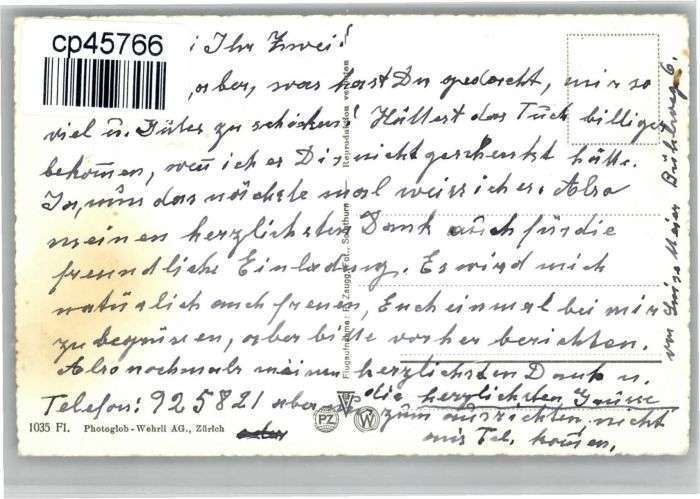 cp45766
Ihr Zwei!
aber, was hast Du gedacht, mir so
viel u. Gutes zu schicken! Hättest das Tuch billiger
bekommen, wenn ich es Dir nicht geschenkt hätte.
Ja, nun das nächste mal weiss ich es. Also
meinen herzlichsten Dank auch für die
freundliche Einladung. Es wird mich
natürlich auch freuen, Euch einmal bei mir
zu begrüssen, aber bitte vorher berichten.
Also nochmals meinen herzlichsten Dank u.
die herzlichsten Grüsse
Telefon: 925821 aber
zum ausrichten, nicht
ans Tel. kommen.
von Luise Meier Bühlweg 6.
Flugaufnahme: P. Zaugg, Fot., Solothurn Reproduktion verboten
1035 Fl. Photoglob-Wehrli AG., Zürich
PZ W